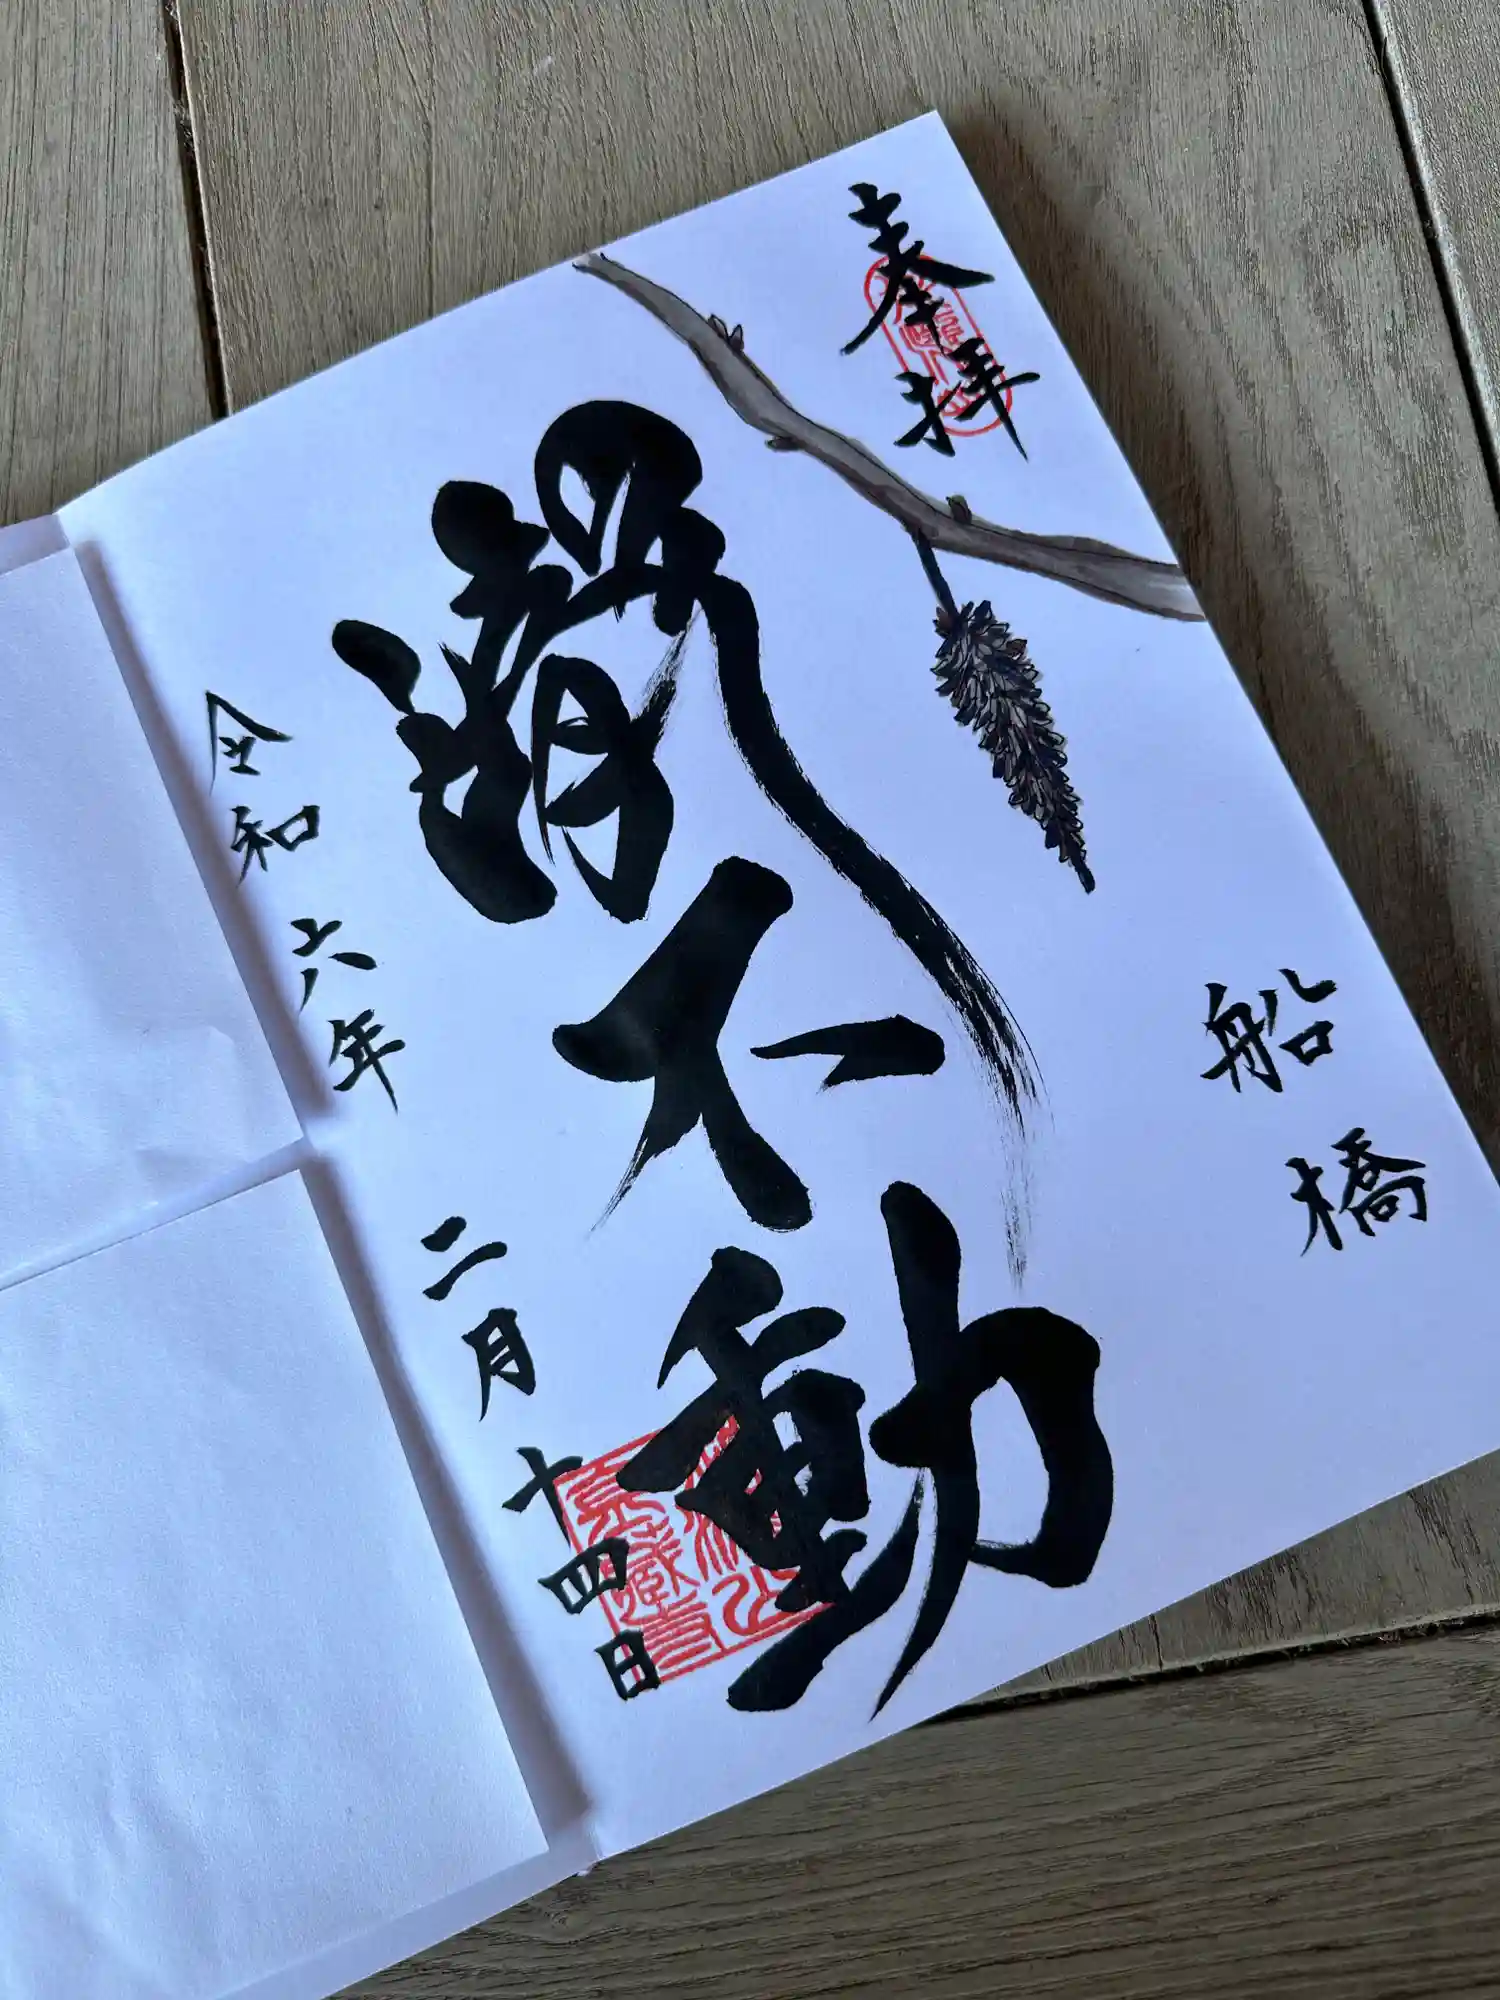 奉拝
船橋
瀧不動
令和六年 二月十四日